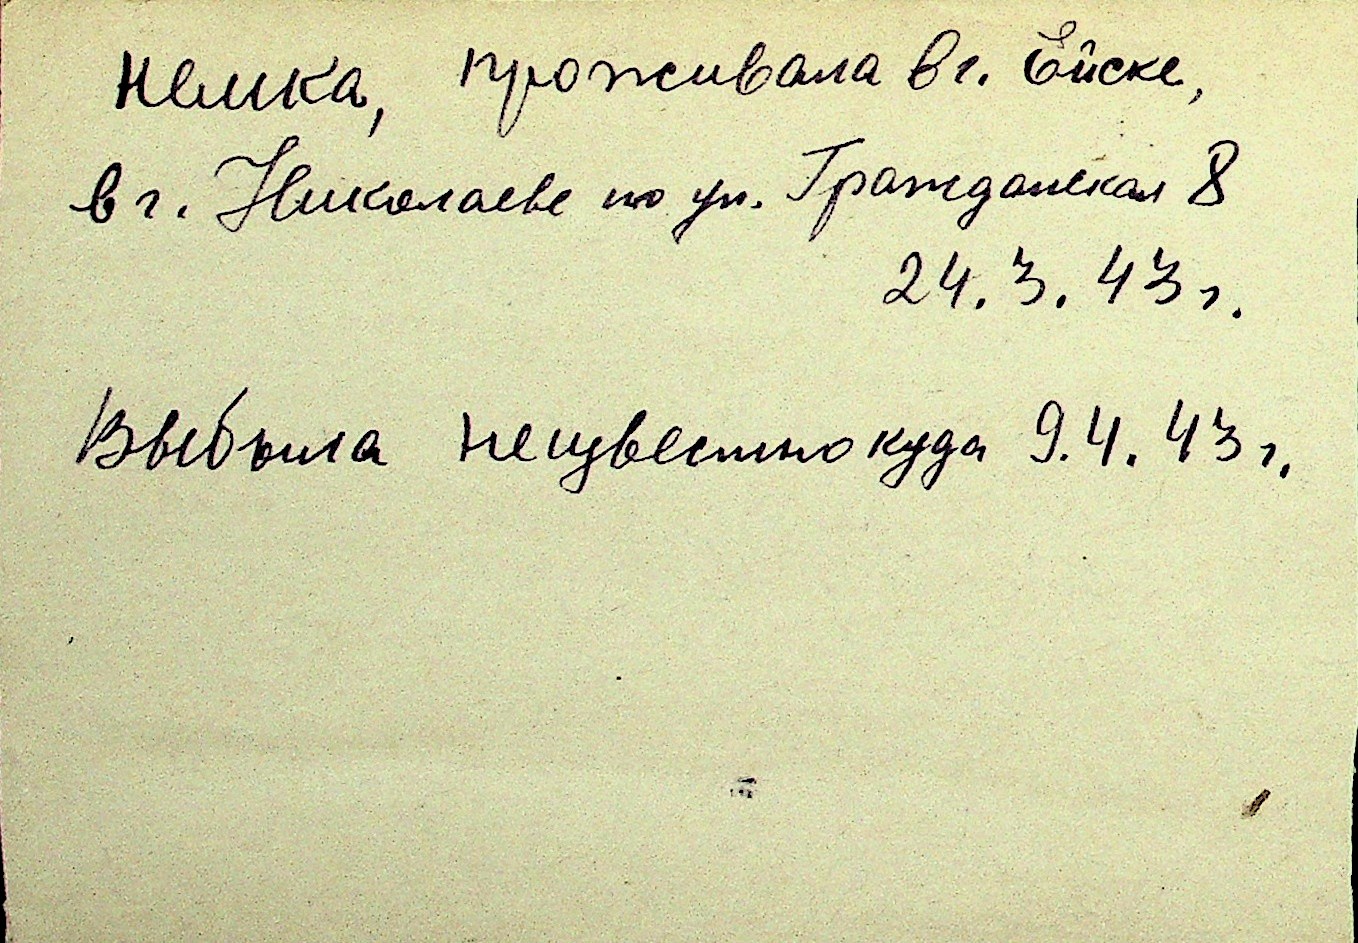 Немка, проживала в г. Ейске,
в г. Николаеве по ул. Гражданская 8
24.3.43 г.
Выбыла неизвестно куда 9.4.43 г.